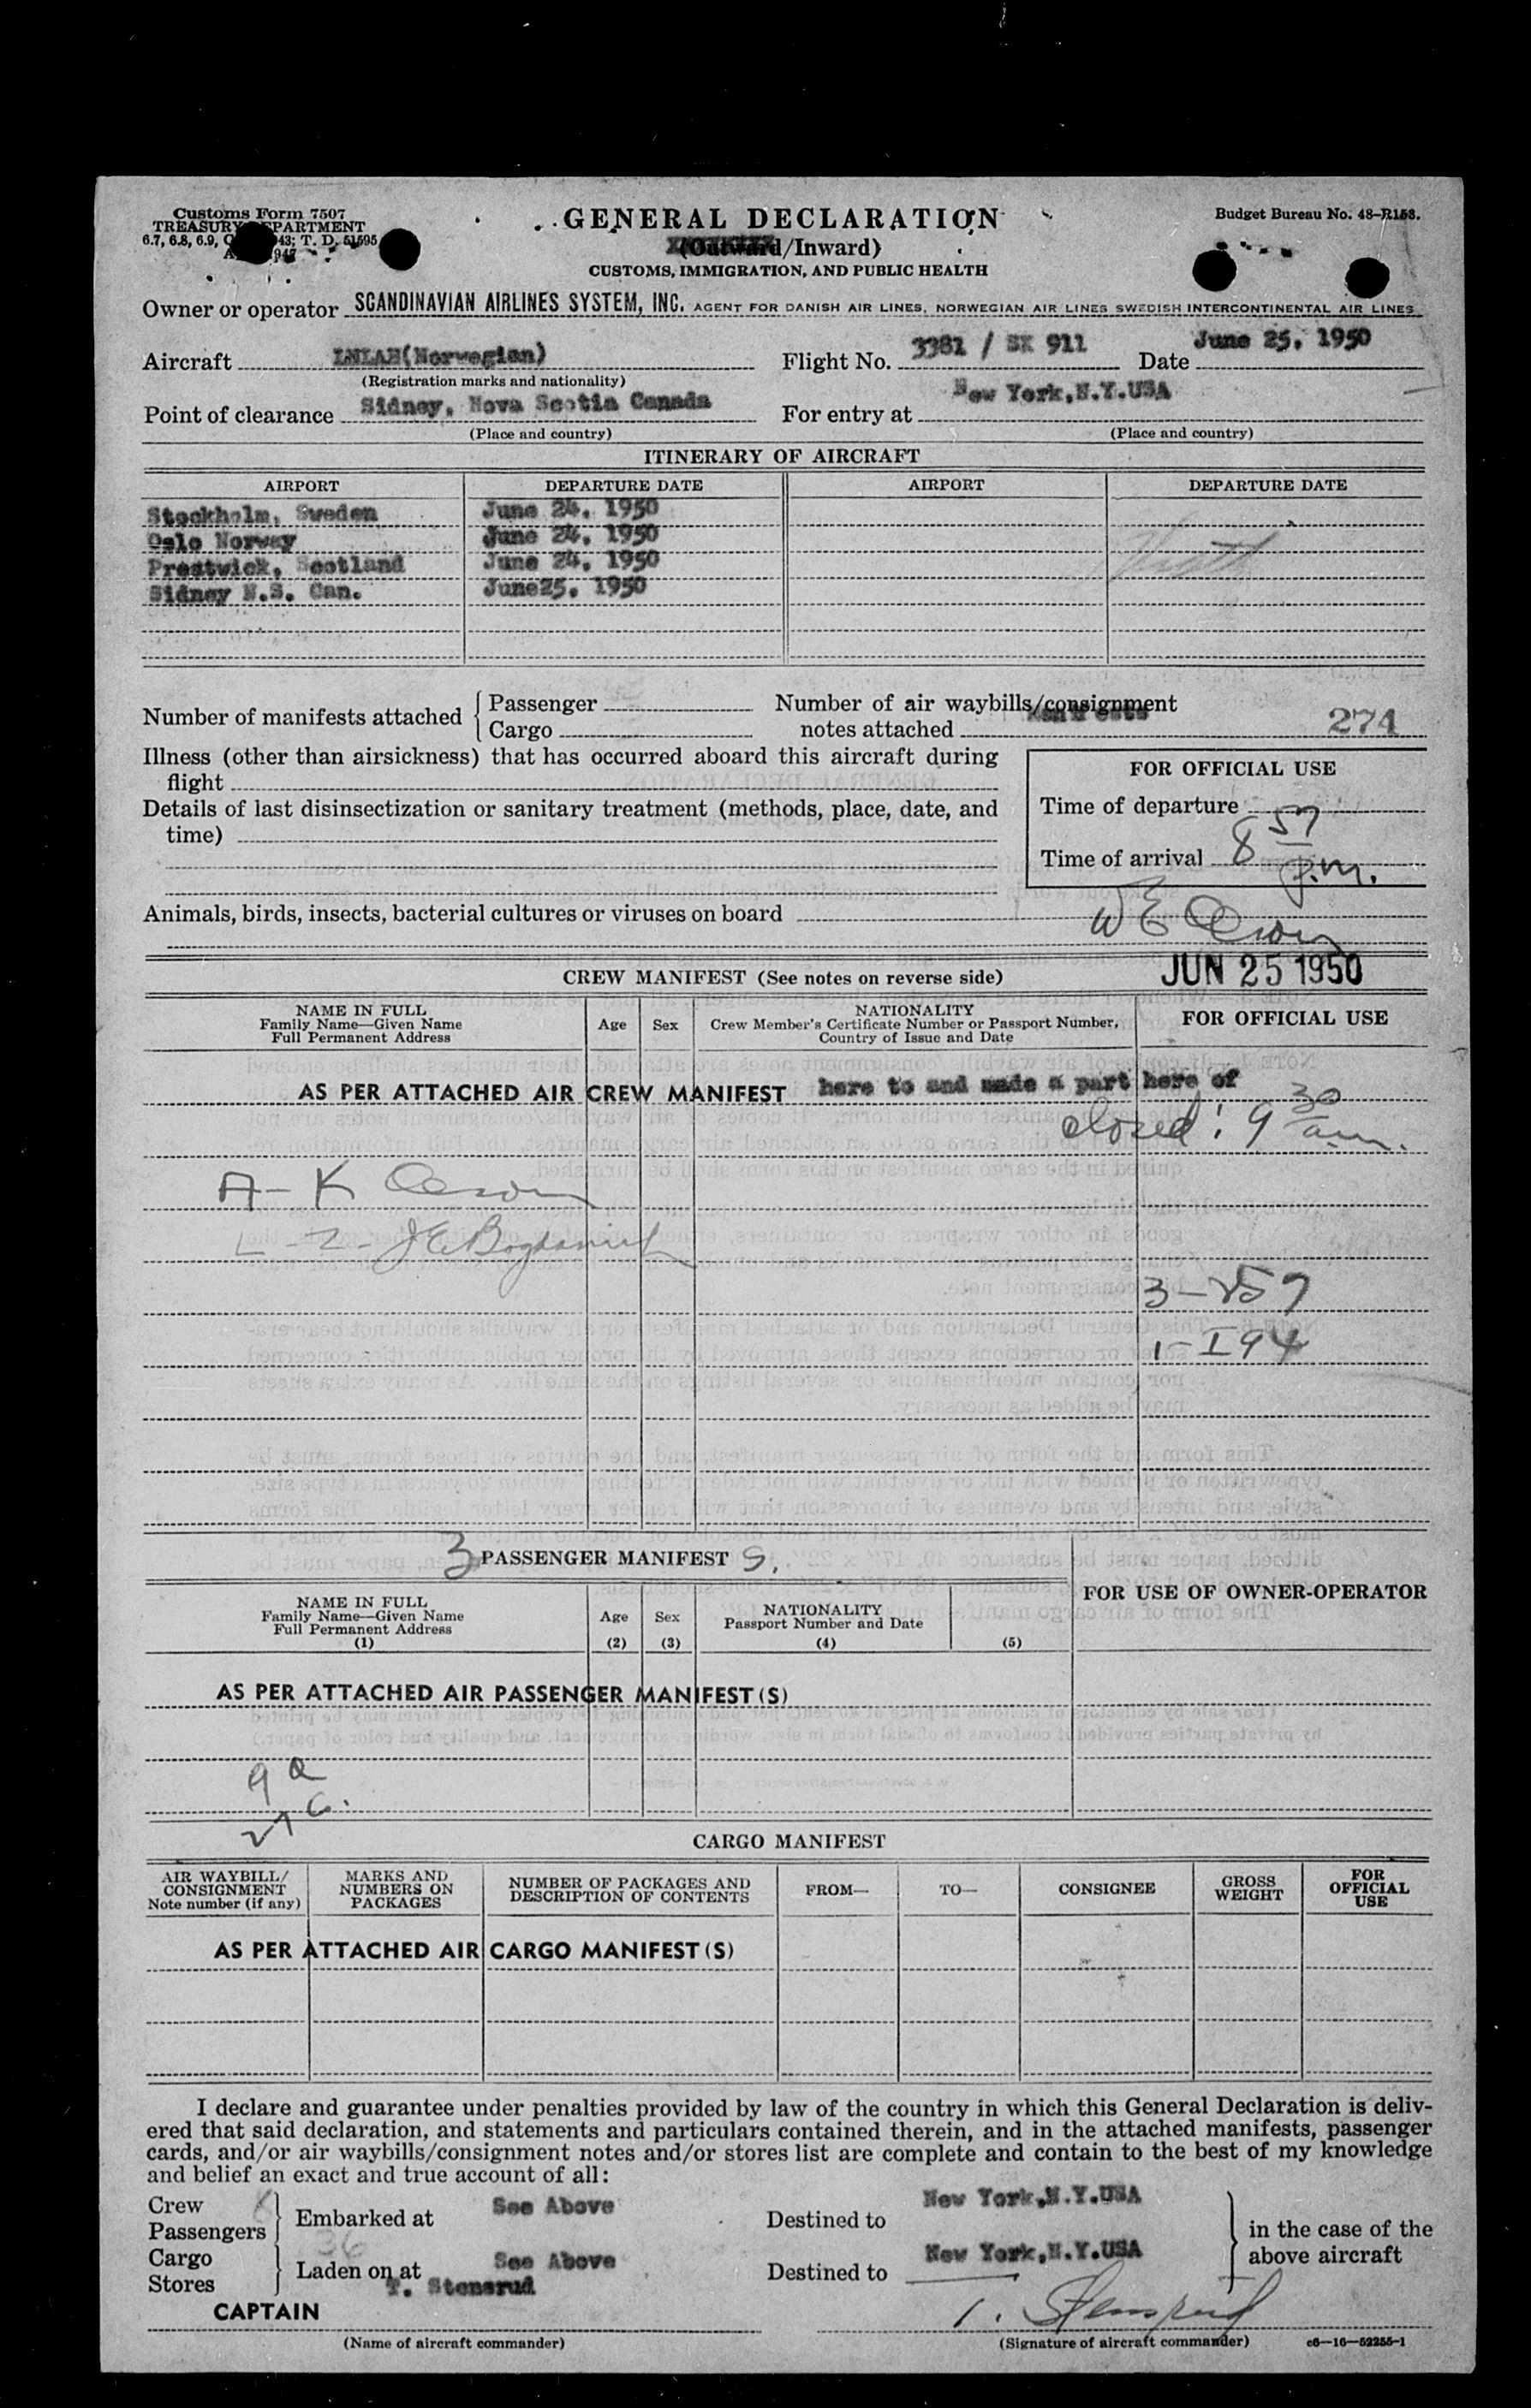 Customs Form 7507
TREASURY DEPARTMENT
6.7, 6.8, 6.9, 43; T. D. 51595
GENERAL DECLARATION
(Outward/Inward)
CUSTOMS, IMMIGRATION, AND PUBLIC HEALTH
Budget Bureau No. 48-R158.
Owner or operator SCANDINAVIAN AIRLINES SYSTEM, INC. AGENT FOR DANISH AIR LINES, NORWEGIAN AIR LINES SWEDISH INTERCONTINENTAL AIR LINES
Aircraft LNLAH(Norwegian) Flight No. 3381 / SK 911 Date June 25, 1950
(Registration marks and nationality)
Point of clearance Sidney, Nova Scotia Canada For entry at New York,N.Y.USA
(Place and country) (Place and country)
ITINERARY OF AIRCRAFT
AIRPORT DEPARTURE DATE AIRPORT DEPARTURE DATE
Stockholm, Sweden June 24, 1950
Oslo Norway June 24, 1950
Prestwick, Scotland June 24, 1950
Sidney N.S. Can. June25, 1950
Number of manifests attached { Passenger
Cargo
Number of air waybills/consignment
notes attached 274
Illness (other than airsickness) that has occurred aboard this aircraft during
flight
Details of last disinsectization or sanitary treatment (methods, place, date, and
time)
FOR OFFICIAL USE
Time of departure
Time of arrival 8 57
p.m.
Animals, birds, insects, bacterial cultures or viruses on board
W E
JUN 25 1950
CREW MANIFEST (See notes on reverse side)
NAME IN FULL
Family Name—Given Name
Full Permanent Address
Age Sex
NATIONALITY
Crew Member's Certificate Number or Passport Number,
Country of Issue and Date
FOR OFFICIAL USE
AS PER ATTACHED AIR CREW MANIFEST here to and made a part here of
closed: 9 30 a.m.
A - K
L - Z - J E
3 - 257
1 - I 94
3 PASSENGER MANIFEST S.
NAME IN FULL
Family Name—Given Name
Full Permanent Address
(1)
Age
(2)
Sex
(3)
NATIONALITY
Passport Number and Date
(4) (5)
FOR USE OF OWNER-OPERATOR
AS PER ATTACHED AIR PASSENGER MANIFEST(S)
9 a
27 c.
CARGO MANIFEST
AIR WAYBILL/
CONSIGNMENT
Note number (if any)
MARKS AND
NUMBERS ON
PACKAGES
NUMBER OF PACKAGES AND
DESCRIPTION OF CONTENTS
FROM—
TO—
CONSIGNEE
GROSS
WEIGHT
FOR
OFFICIAL
USE
AS PER ATTACHED AIR CARGO MANIFEST(S)
I declare and guarantee under penalties provided by law of the country in which this General Declaration is deliv-
ered that said declaration, and statements and particulars contained therein, and in the attached manifests, passenger
cards, and/or air waybills/consignment notes and/or stores list are complete and contain to the best of my knowledge
and belief an exact and true account of all:
Crew
Passengers
Embarked at See Above Destined to New York,N.Y.USA
36
Cargo
Stores
Laden on at See Above Destined to New York,N.Y.USA
in the case of the
above aircraft
T. Stensrud
CAPTAIN
T. Stensrud
(Name of aircraft commander) (Signature of aircraft commander) c6—16—52255-1